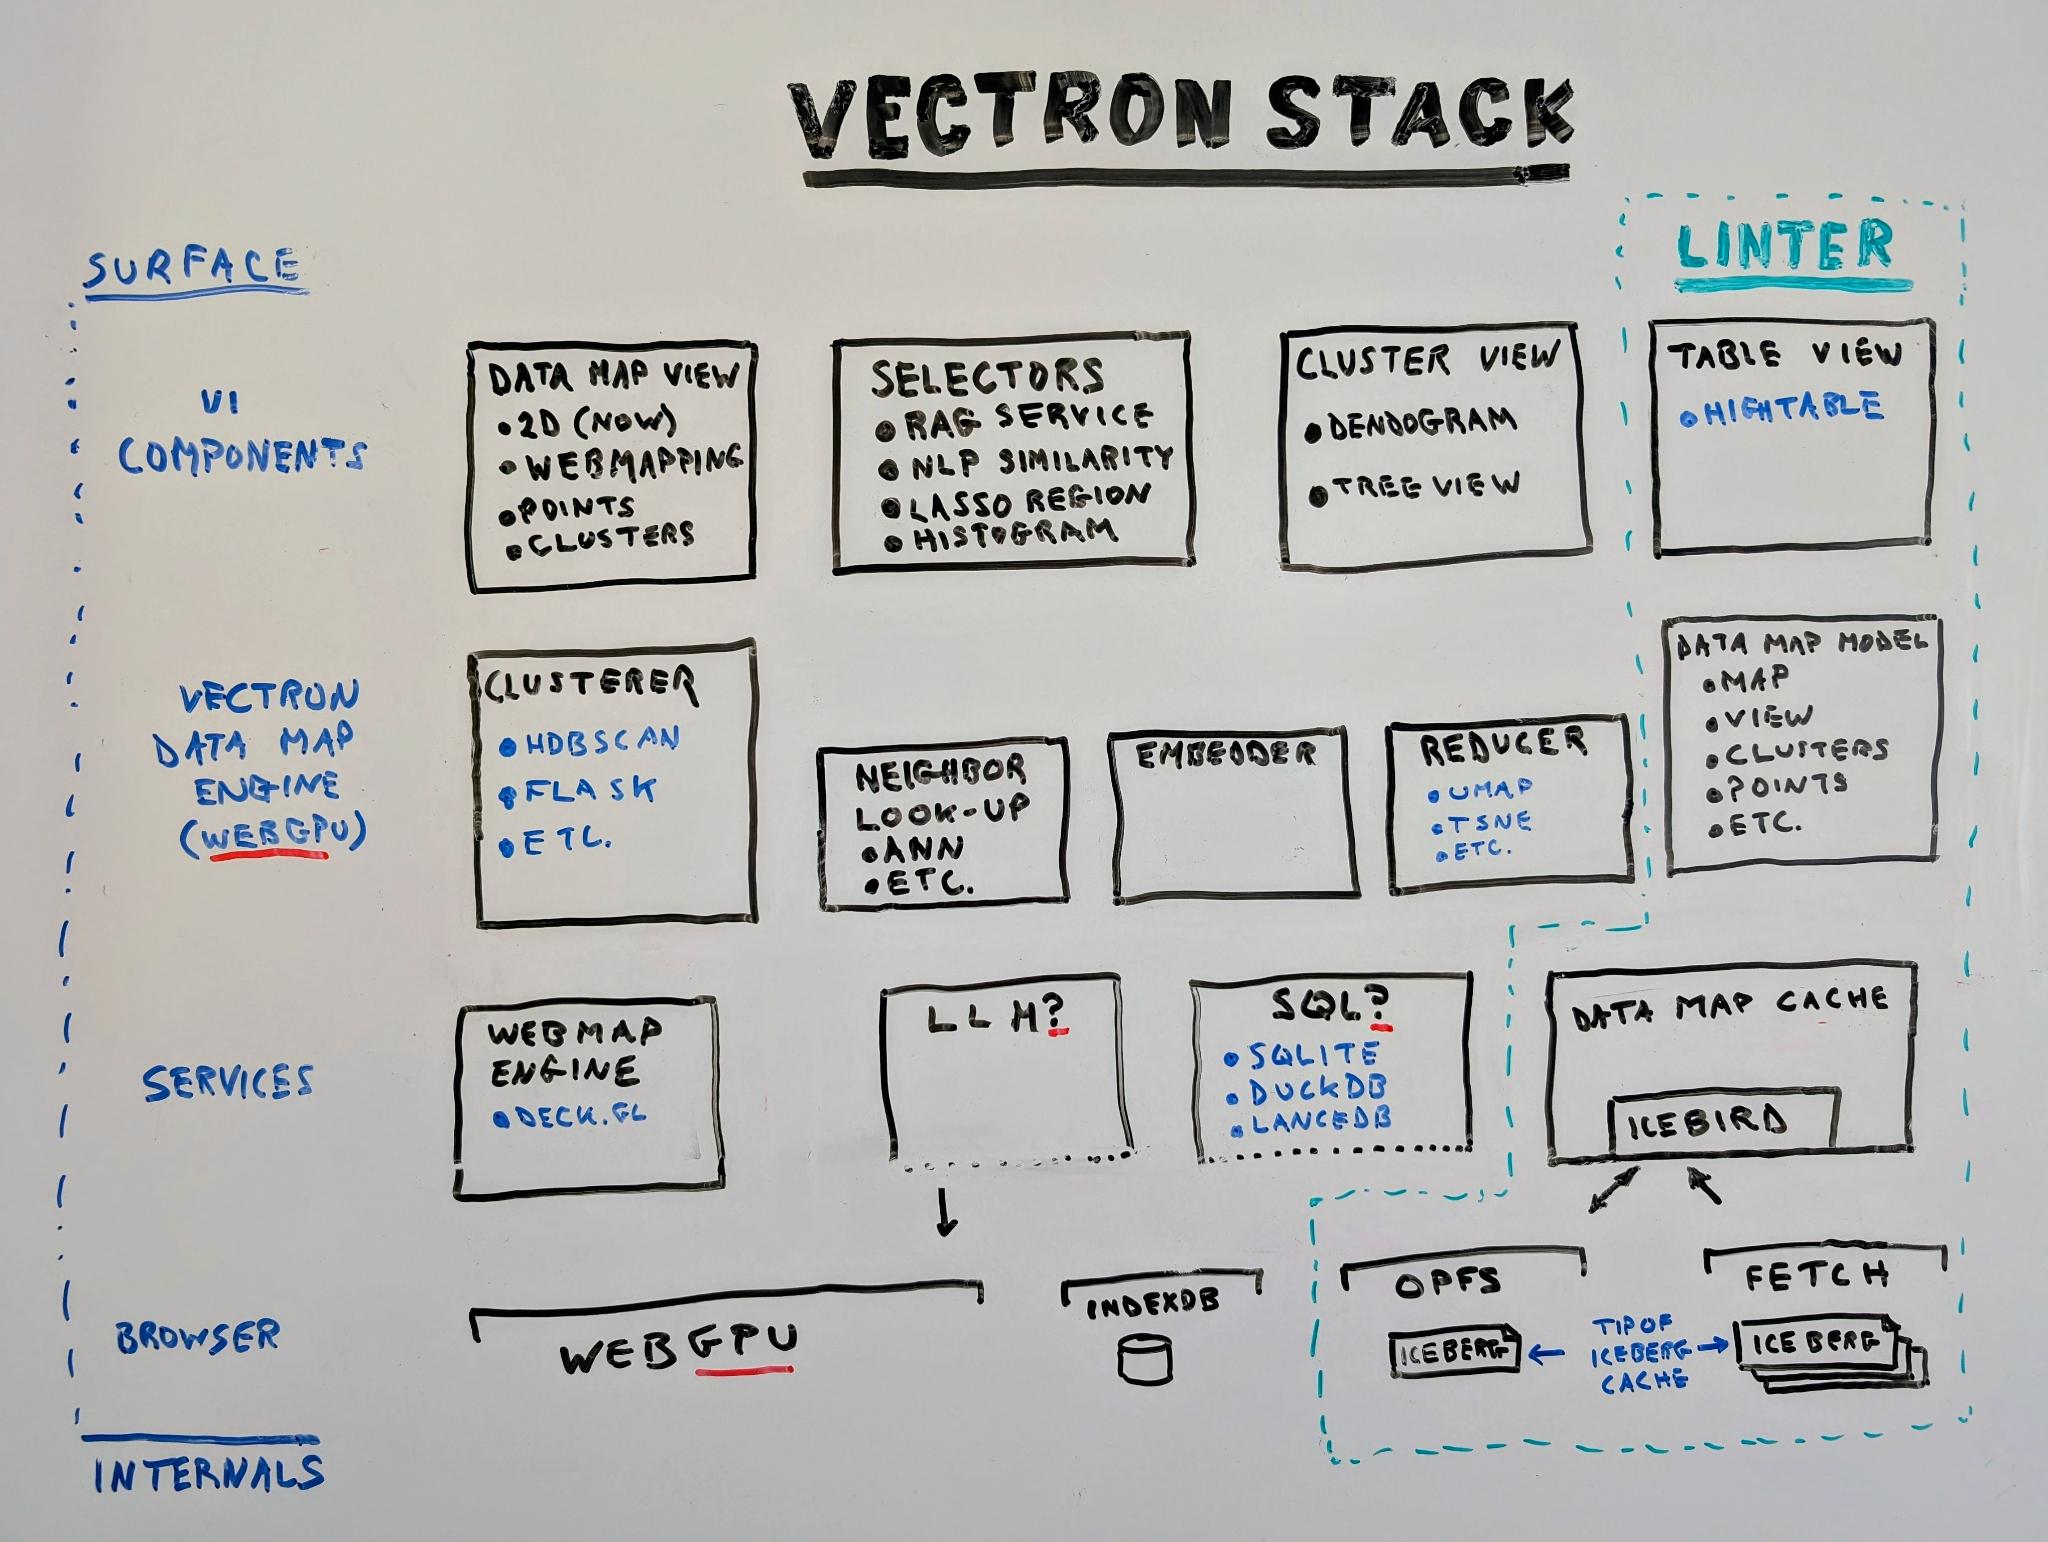 VECTRON STACK
LINTER
SURFACE
UI
COMPONENTS
DATA MAP VIEW
• 2D (NOW)
• WEBMAPPING
• POINTS
• CLUSTERS
SELECTORS
• RAG SERVICE
• NLP SIMILARITY
• LASSO REGION
• HISTOGRAM
CLUSTER VIEW
• DENDOGRAM
• TREE VIEW
TABLE VIEW
• HIGHTABLE
VECTRON
DATA MAP
ENGINE
(WEBGPU)
CLUSTERER
• HDBSCAN
• FLASK
• ETC.
NEIGHBOR
LOOK-UP
• ANN
• ETC.
EMBEDDER
REDUCER
• UMAP
• TSNE
• ETC.
DATA MAP MODEL
• MAP
• VIEW
• CLUSTERS
• POINTS
• ETC.
SERVICES
WEBMAP
ENGINE
• DECK.GL
LLM?
SQL?
• SQLITE
• DUCKDB
• LANCEDB
DATA MAP CACHE
ICEBIRD
BROWSER
WEBGPU
INDEXDB
OPFS
ICEBERG
TIP OF
ICEBERG
CACHE
FETCH
ICEBERG
INTERNALS